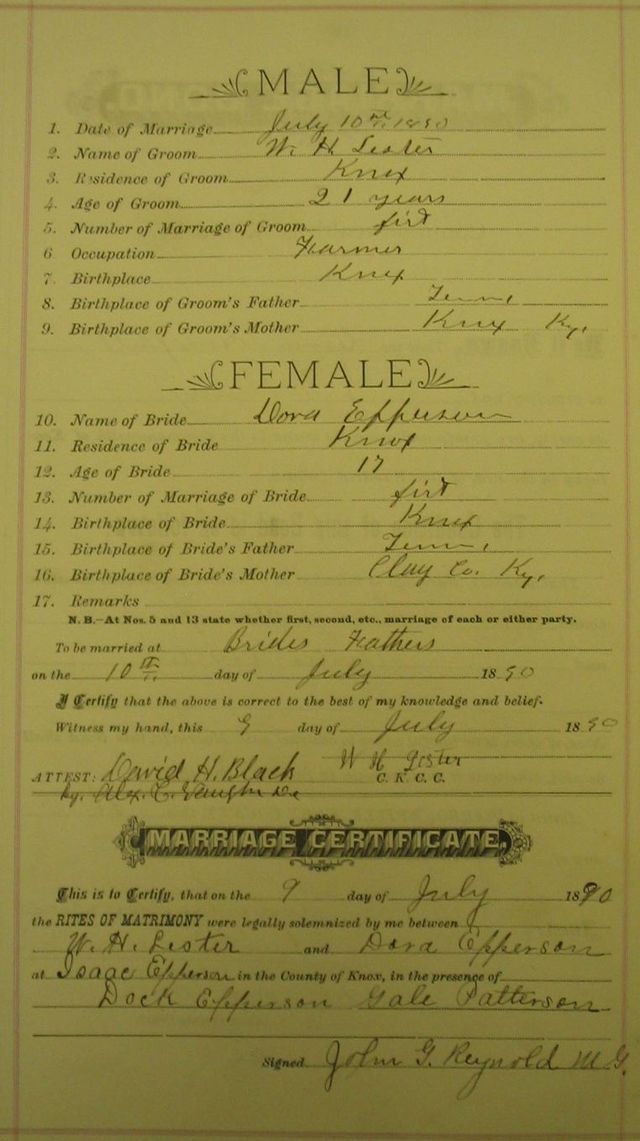 MALE
1. Date of Marriage July 10th 1890
2. Name of Groom W. H. Lester
3. Residence of Groom Knox
4. Age of Groom 21 years
5. Number of Marriage of Groom firt
6. Occupation Farmer
7. Birthplace Knox
8. Birthplace of Groom's Father Tenn.
9. Birthplace of Groom's Mother Knox Ky.
FEMALE
10. Name of Bride Dora Epperson
11. Residence of Bride Knox
12. Age of Bride 17
13. Number of Marriage of Bride firt
14. Birthplace of Bride Knox
15. Birthplace of Bride's Father Tenn.
16. Birthplace of Bride's Mother Clay Co. Ky.
17. Remarks
N. B.—At Nos. 5 and 13 state whether first, second, etc., marriage of each or either party.
To be married at Brides Fathers
on the 10th day of July 1890
I Certify that the above is correct to the best of my knowledge and belief.
Witness my hand, this 9 day of July 1890
W H Lester
ATTEST: David H. Black C. K. C. C.
By. Alex. C. Vaughn DC
MARRIAGE CERTIFICATE.
This is to Certify, that on the 9 day of July 1890
the RITES OF MATRIMONY were legally solemnized by me between
W. H. Lester and Dora Epperson
at Isaac Epperson in the County of Knox, in the presence of
Dock Epperson Gale Patterson
Signed John G. Reynold M G.